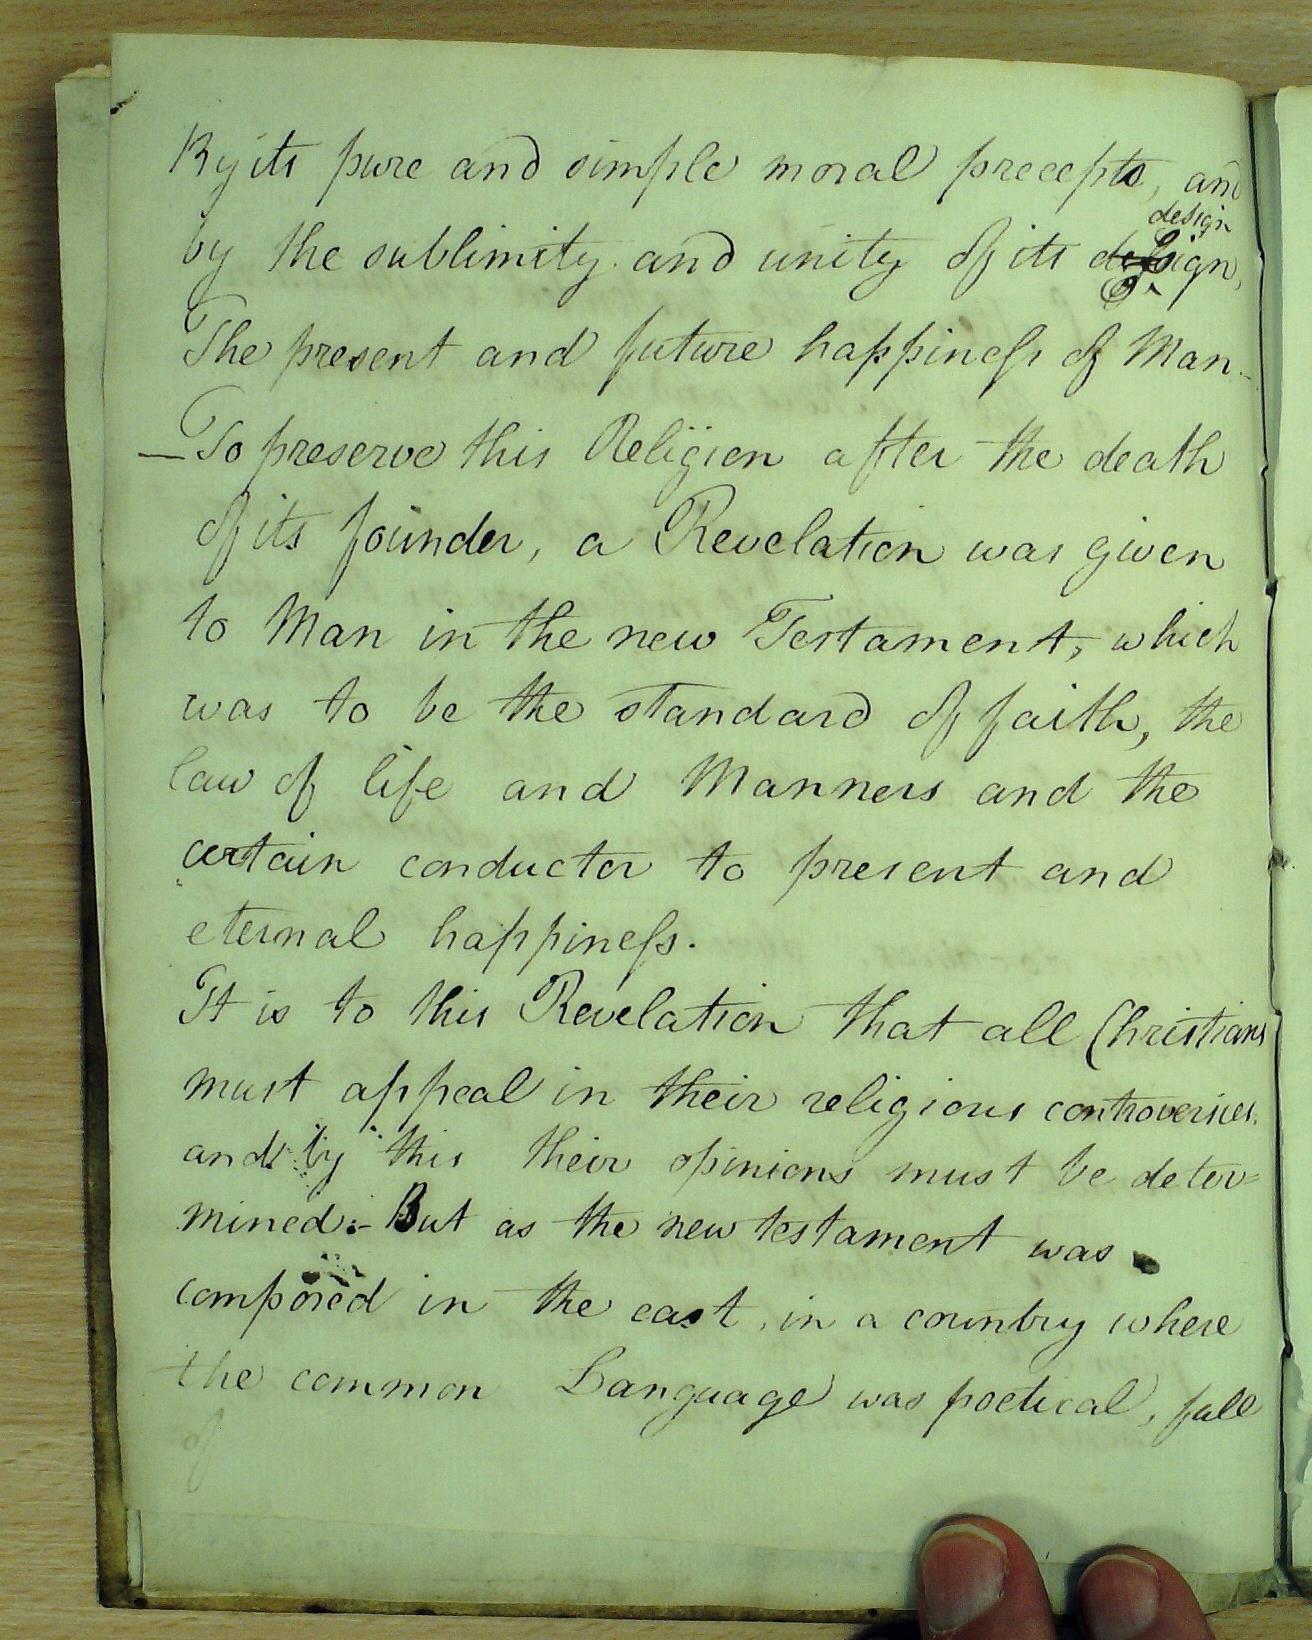 By its pure and simple moral precepts, and
design
by the sublimity and unity of its design,
The present and future happineſs of Man-
—To preserve this Religion after the death
of its founder, a Revelation was given
to Man in the new Testament, which
was to be the standard of faith, the
law of life and Manners and the
certain conductor to present and
eternal happineſs.
It is to this Revelation that all Christians
must appeal in their religious controversies.
and by this their opinions must be deter=
mined:- But as the new testament was
composed in the east, in a country where
the common Language was poetical, full
of